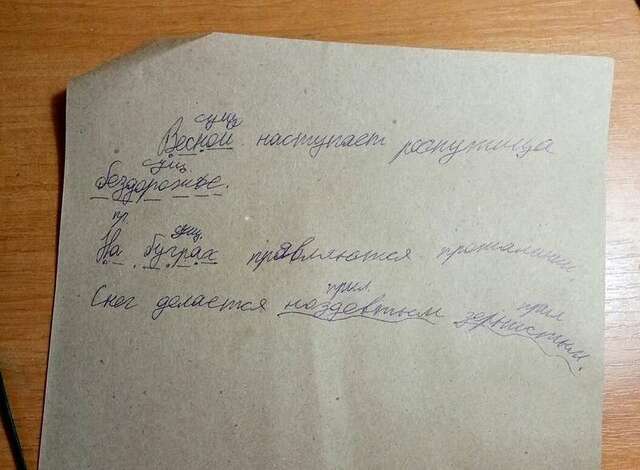 сущ
Весной наступает распутица
сущ
бездорожье.
пр. сущ.
На буграх проявляются проталины.
прил прил
Снег делается ноздевтым зернистым.